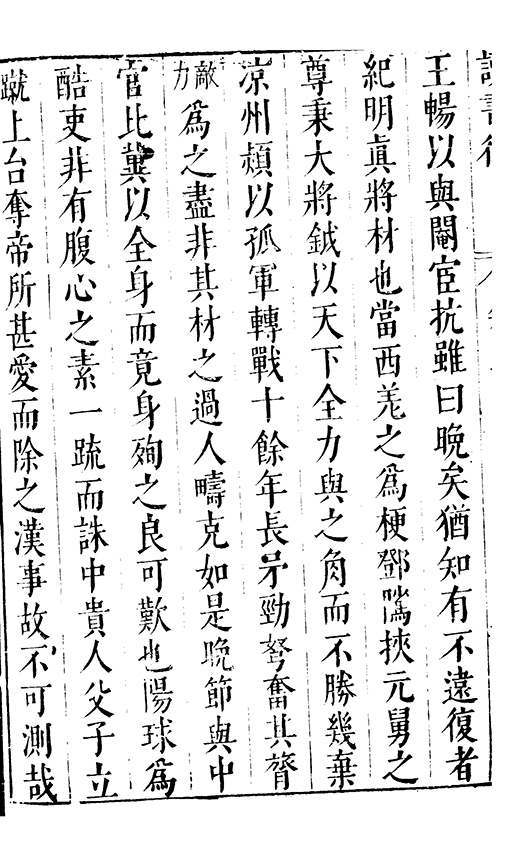 讀書後
王暢以與閹宦抗雖曰晚矣猶知有不遠復者
紀明眞將材也當西羌之爲梗鄧隲挾元舅之
尊秉大將鉞以天下全力與之角而不勝幾棄
凉州熲以孤軍轉戰十餘年長矛勁弩奮其膂
力敵爲之盡非其材之過人疇克如是晚節與中
官比冀以全身而竟身殉之良可歎也陽球爲
酷吏非有腹心之素一疏而誅中貴人父子立
蹴上台奪帝所甚愛而除之漢事故不可測哉